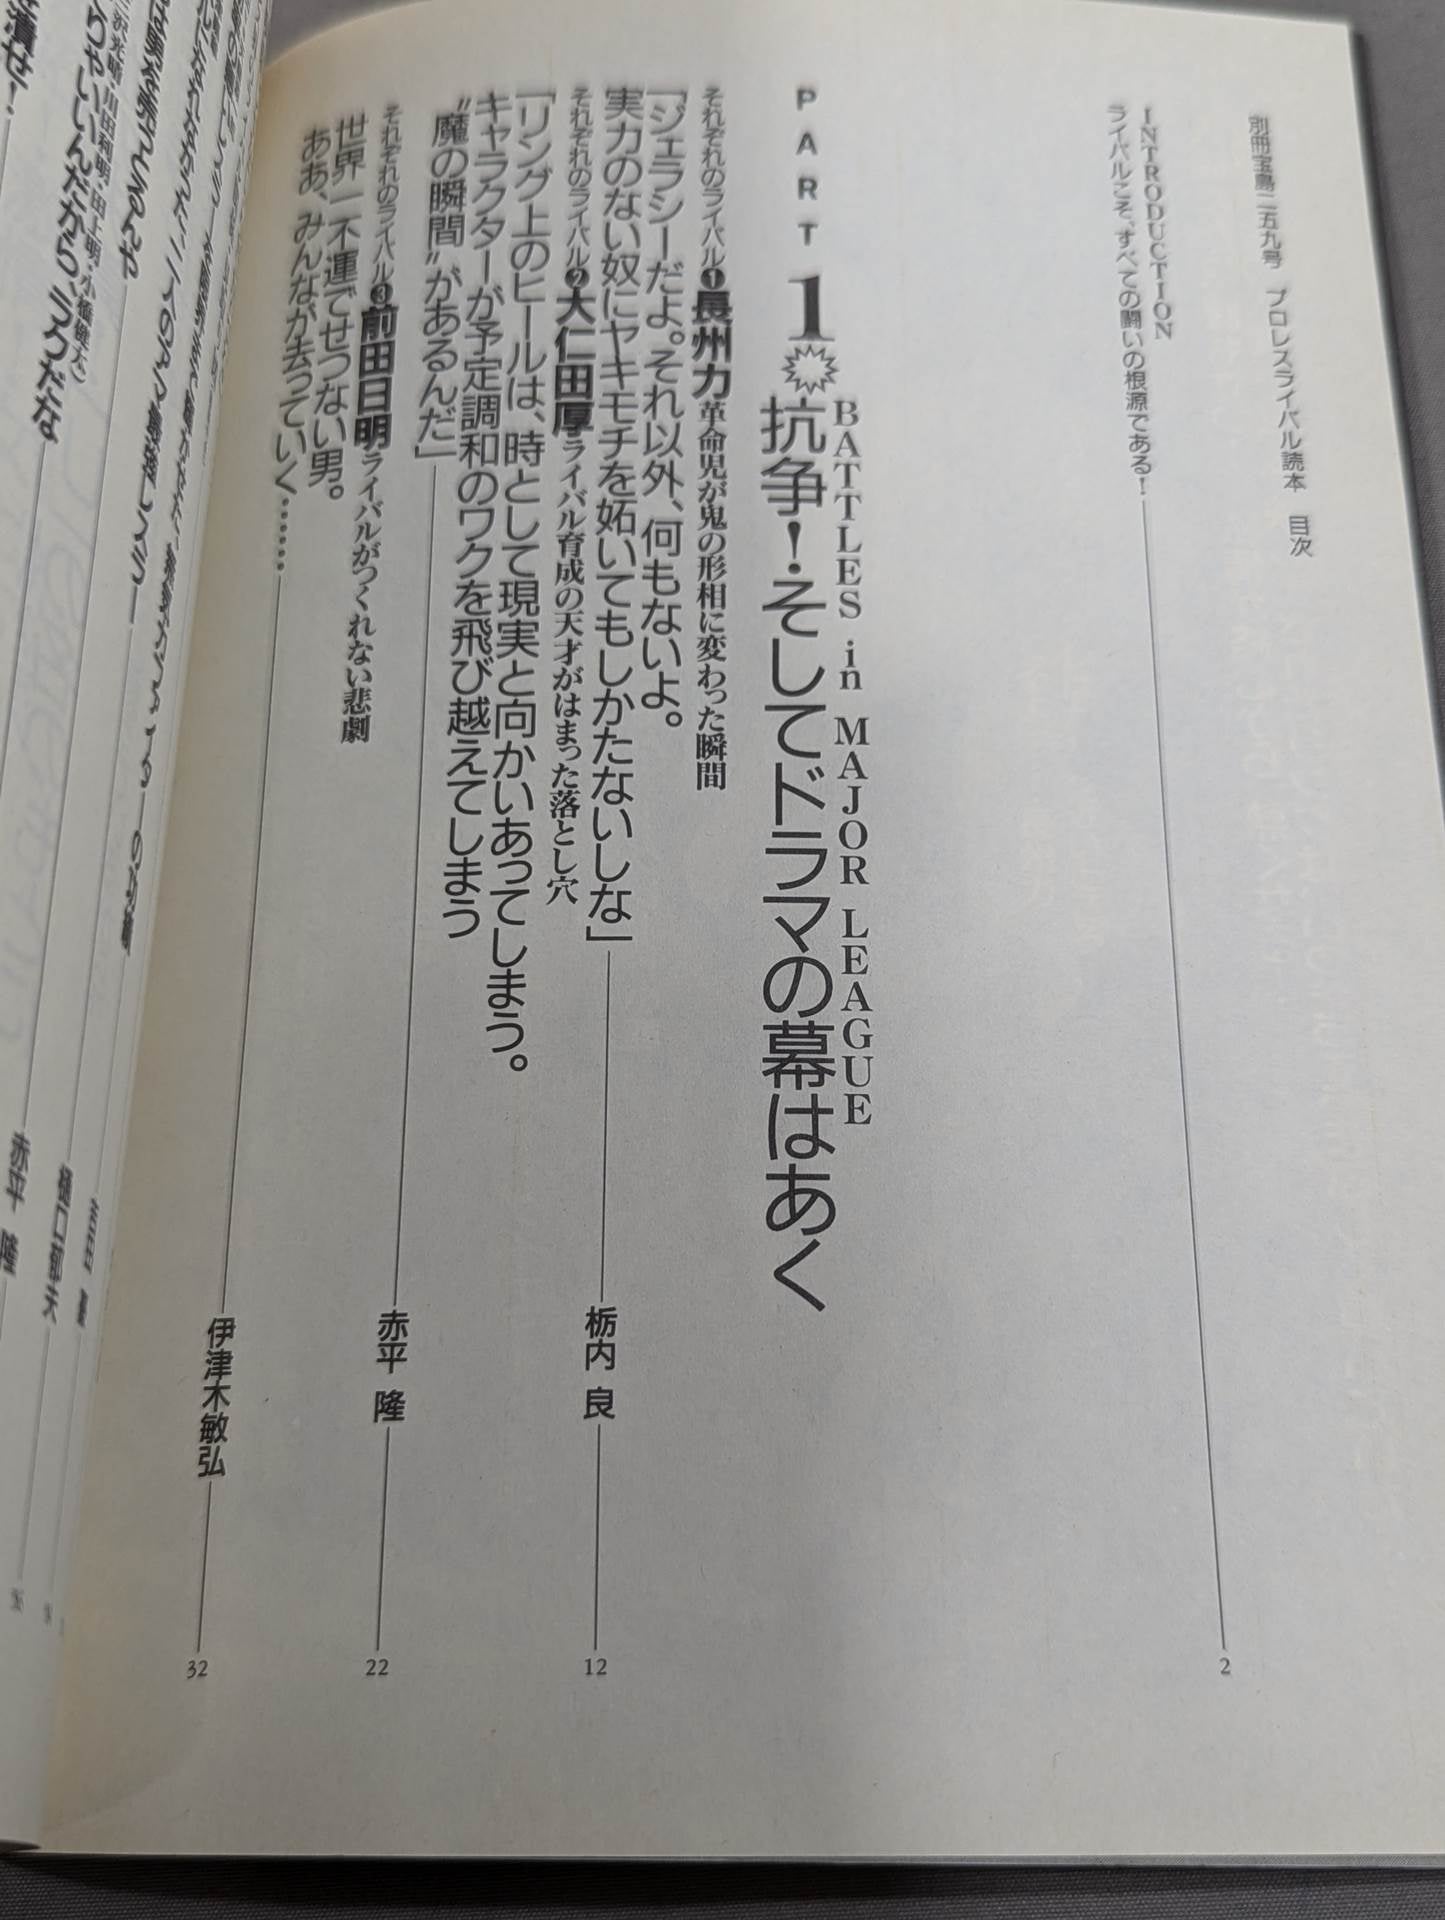 別冊宝島二五九号 プロレスライバル読本 目次
INTRODUCTION
ライバルこそ、すべての闘いの根源である!
2
BATTLES in MAJOR LEAGUE
PART 1 抗争!そしてドラマの幕はあく
それぞれのライバル❶長州力 革命児が鬼の形相に変わった瞬間
「ジェラシーだよ。それ以外、何もないよ。
実力のない奴にヤキモチを妬いてもしかたないしな」
栃内 良
12
それぞれのライバル❷大仁田厚 ライバル育成の天才がはまった落とし穴
「リング上のヒールは、時として現実と向かいあってしまう。
キャラクターが予定調和のワクを飛び越えてしまう
〝魔の瞬間〟があるんだ」
赤平 隆
22
それぞれのライバル❸前田日明 ライバルがつくれない悲劇
世界一不運でせつない男。
ああ、みんなが去っていく……
伊津木敏弘
32
三沢光晴・川田利明・田上明・小橋健太
りゃいいんだから、ラクだな
樋口郁夫
潰せ!
赤平 隆